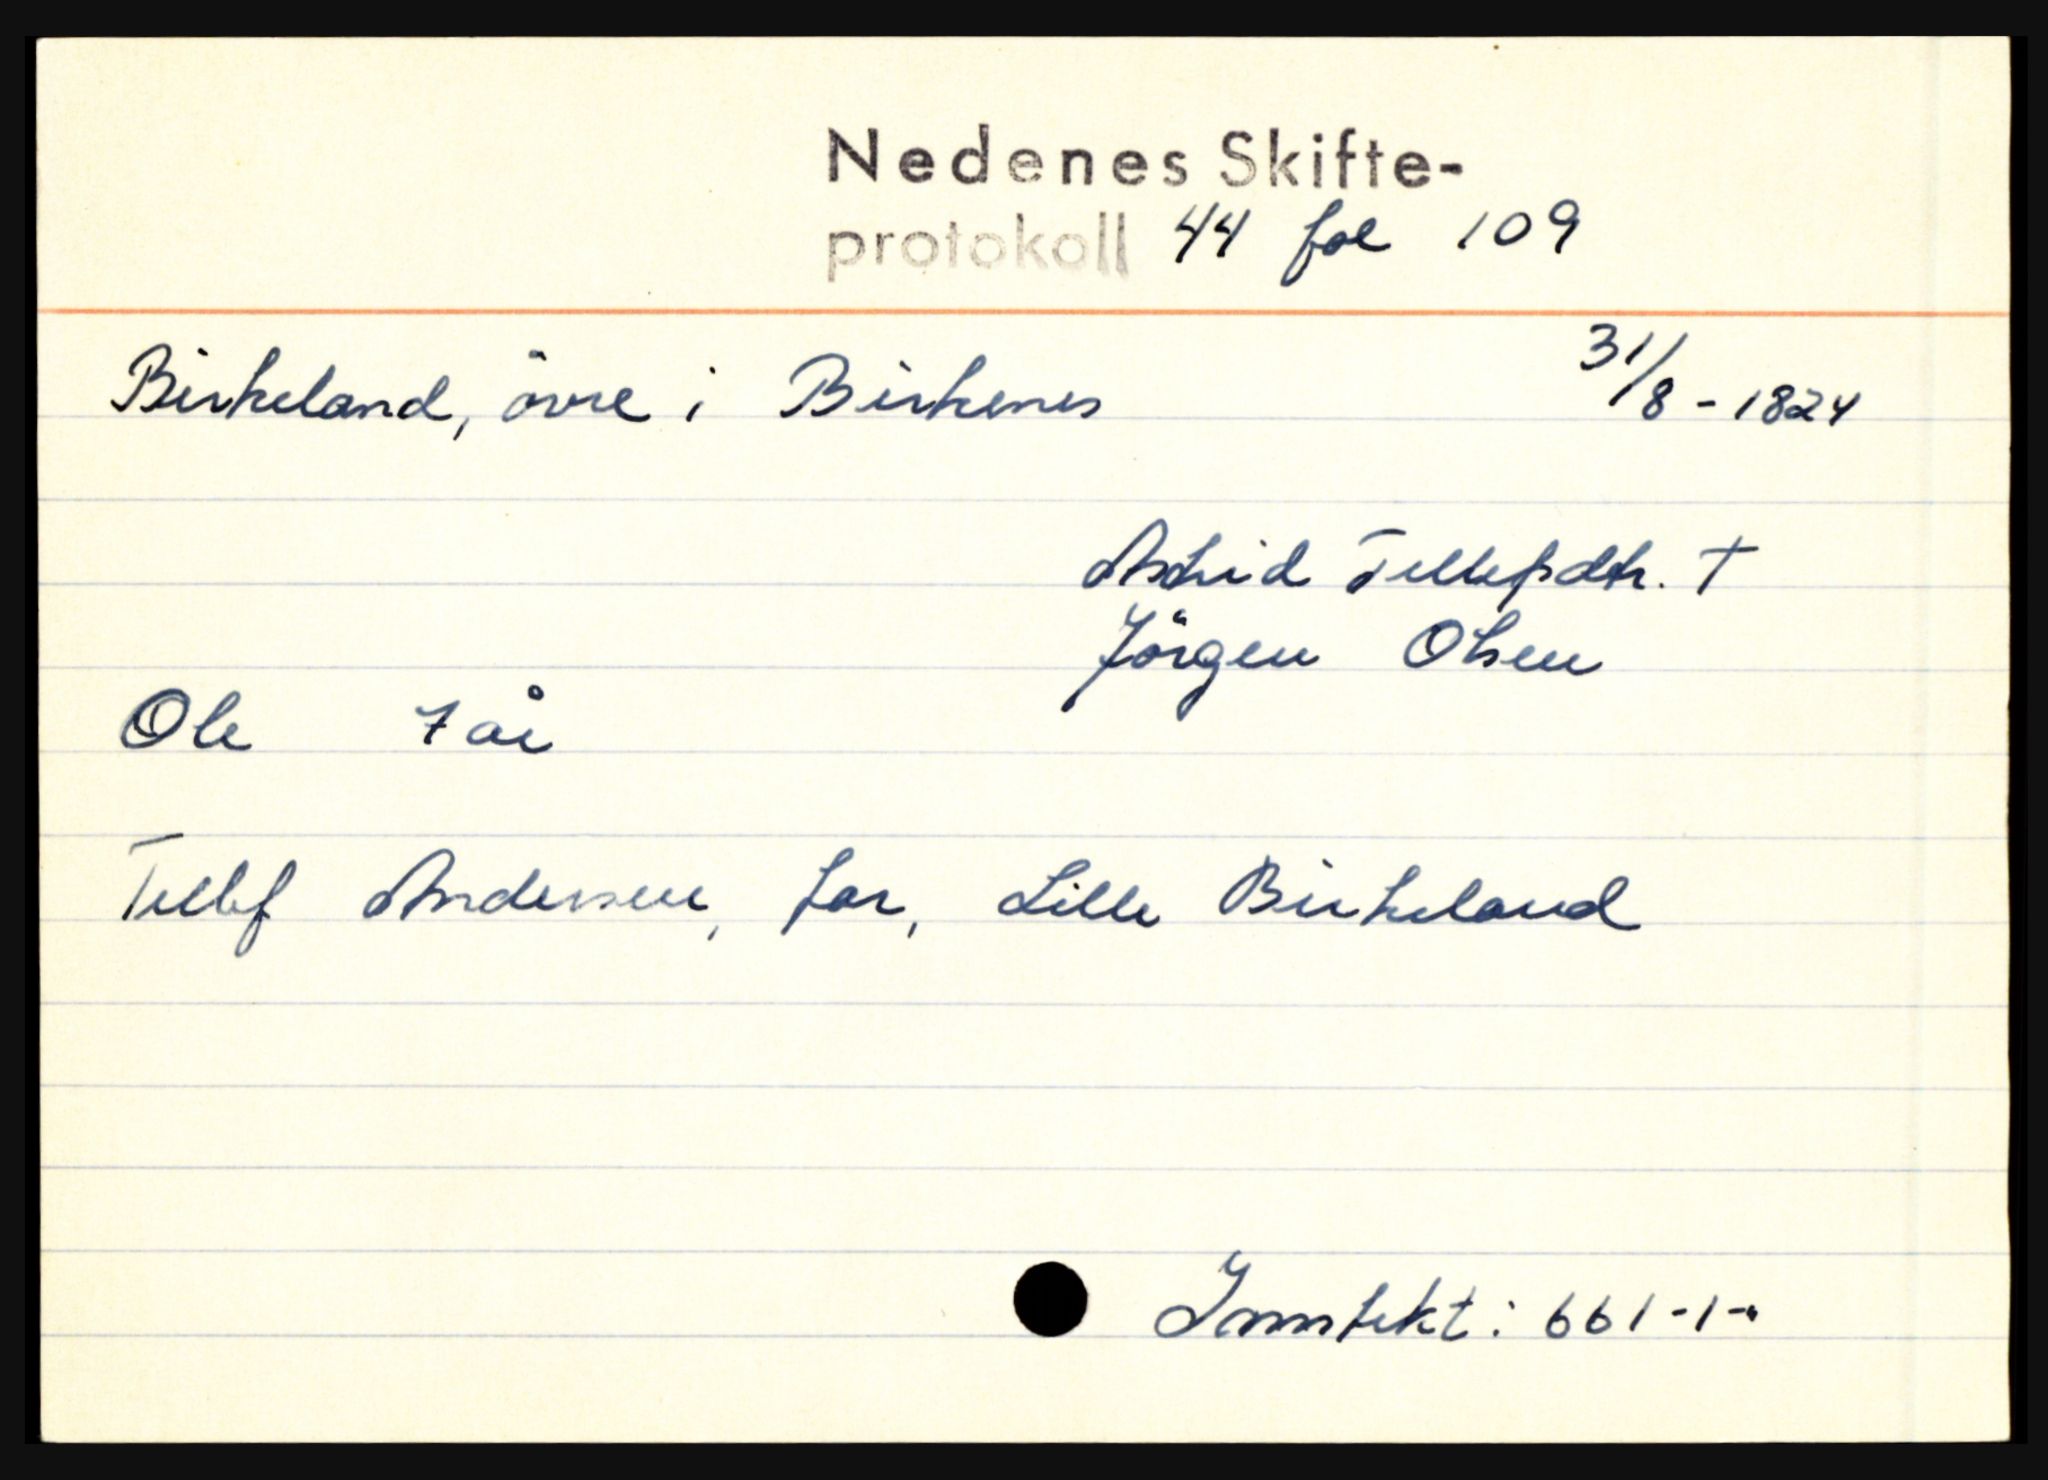 Nedenes Skifte-
protokoll 44 fol 109
Birkeland, övre i Birkenes 31/8 - 1824
Astrid Tellefsdtr. †
Jörgen Olsen
Ole 7 år
Tellef Andersen, far, Lille Birkeland
Inntekt: 661-1-"